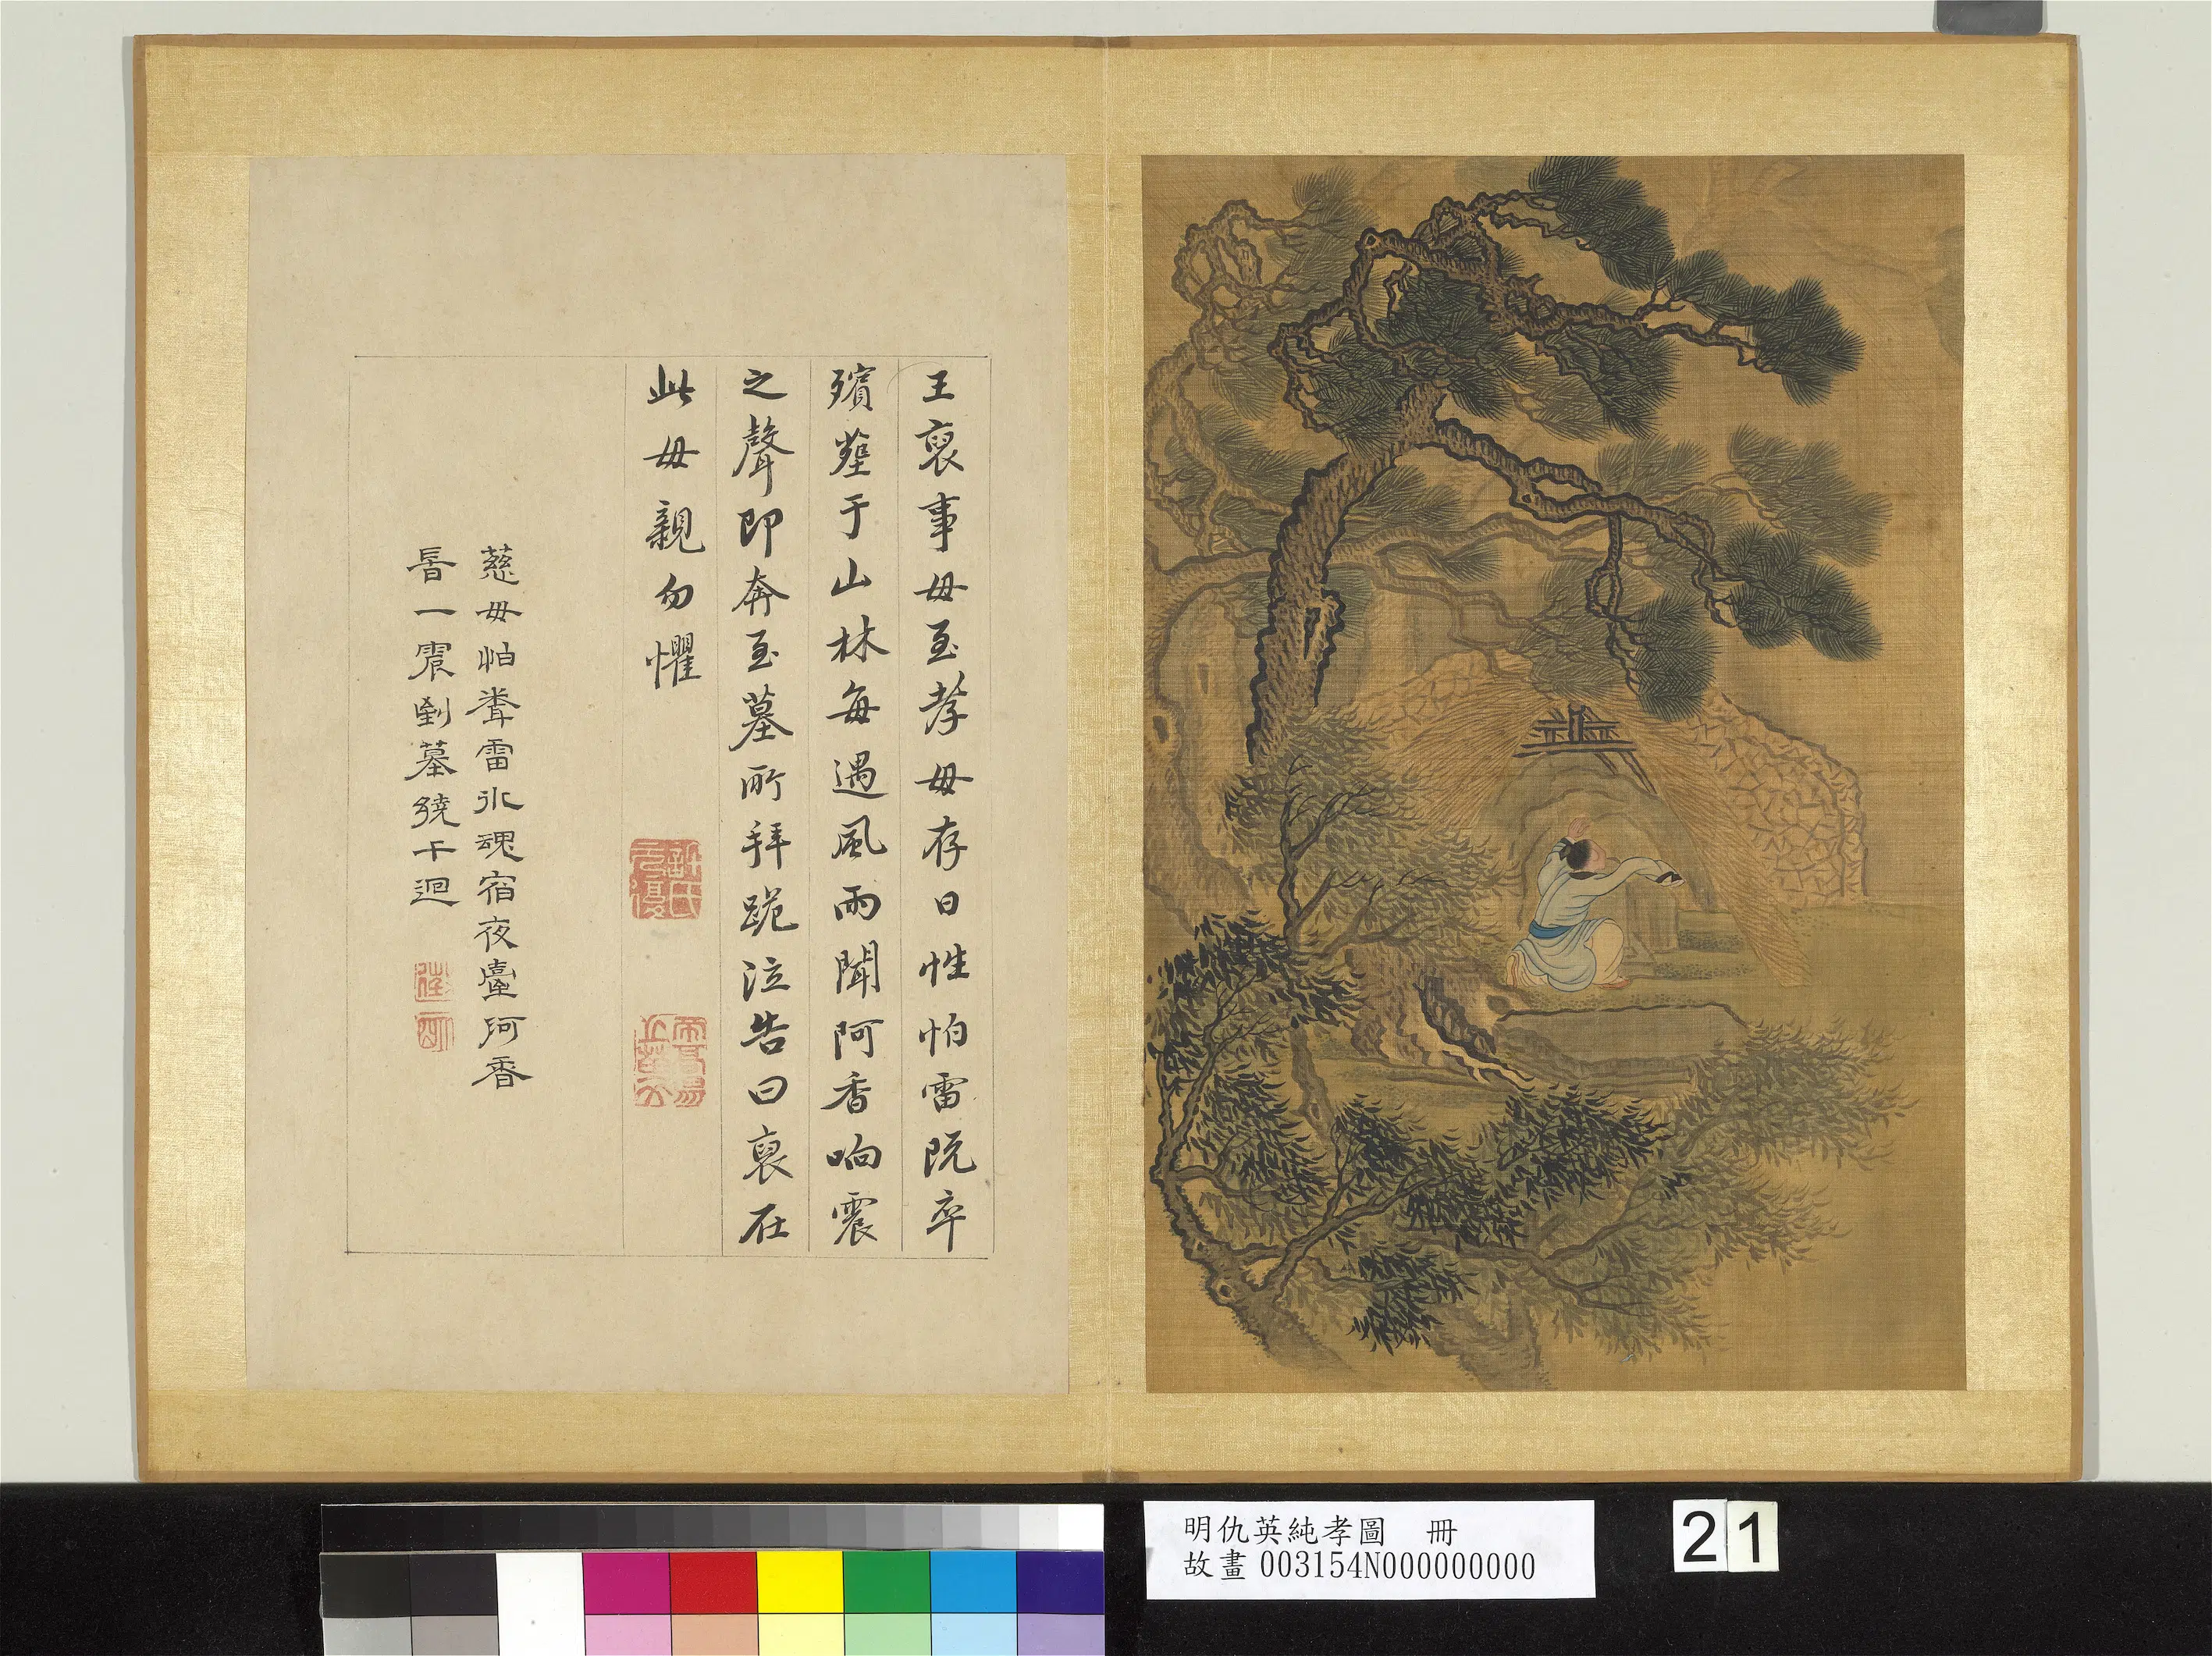 王裒事毋至孝毋存日性怕雷既卒
殯塟于山林每遇風雨聞阿香响震
之聲即奔至墓所拜跪泣告曰裒在
此毋親勿懼
慈毋怕聋雷冰魂宿夜臺阿香
旹一震到墓繞千迴
明仇英純孝圖 冊
故畫 003154N000000000
21